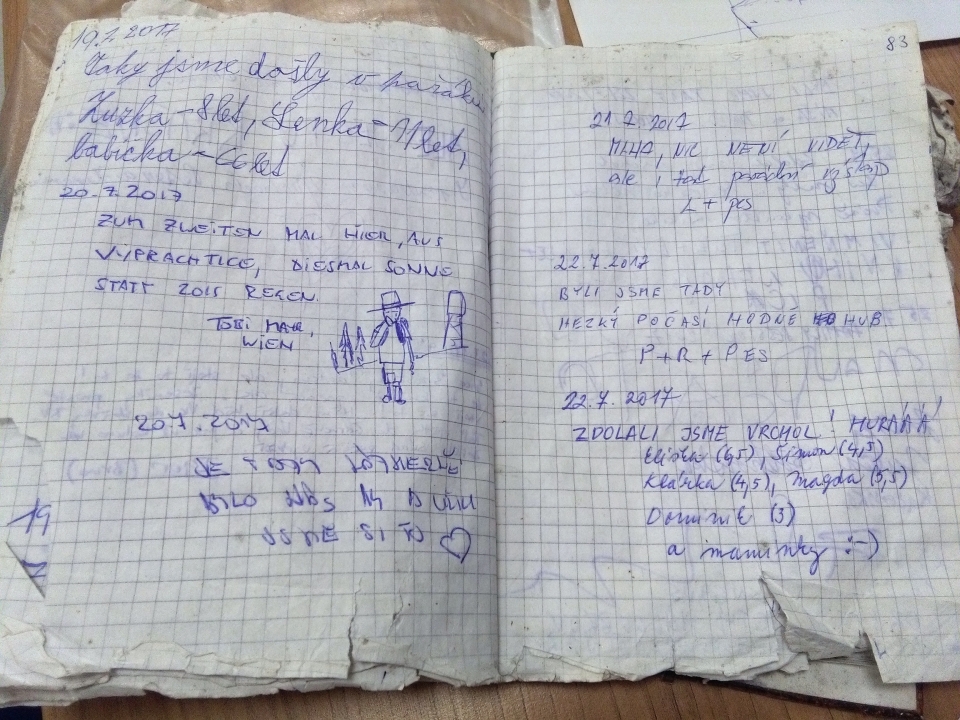 19.7.2017
Taky jsme došly v pořádku
Zuzka - 8 let, Lenka - 11 let,
babička - 66 let
20.7.2017
ZUM ZWEITEN MAL HIER, AUS
VÝPRACHTICE, DIESMAL SONNE
STATT 2015 REGEN.
TOBI
WIEN
20.7.2017
JE TADY NÁDHERNĚ
BYLO NÁS
JSME SI TO ♡
19
83
21.7.2017
MLHA, NIC NENÍ VIDĚT,
ale i tak parádní výšlap
L + pes
22.7.2017
BYLI JSME TADY
HEZKÝ POČASÍ HODNĚ HUB
P+R+PES
22.7.2017
ZDOLALI JSME VRCHOL! HURÁÁÁ!
Eliška (6,5), Šimon (4,5)
Klárka (4,5), Magda (5,5)
Dominik (3)
a maminky :-)